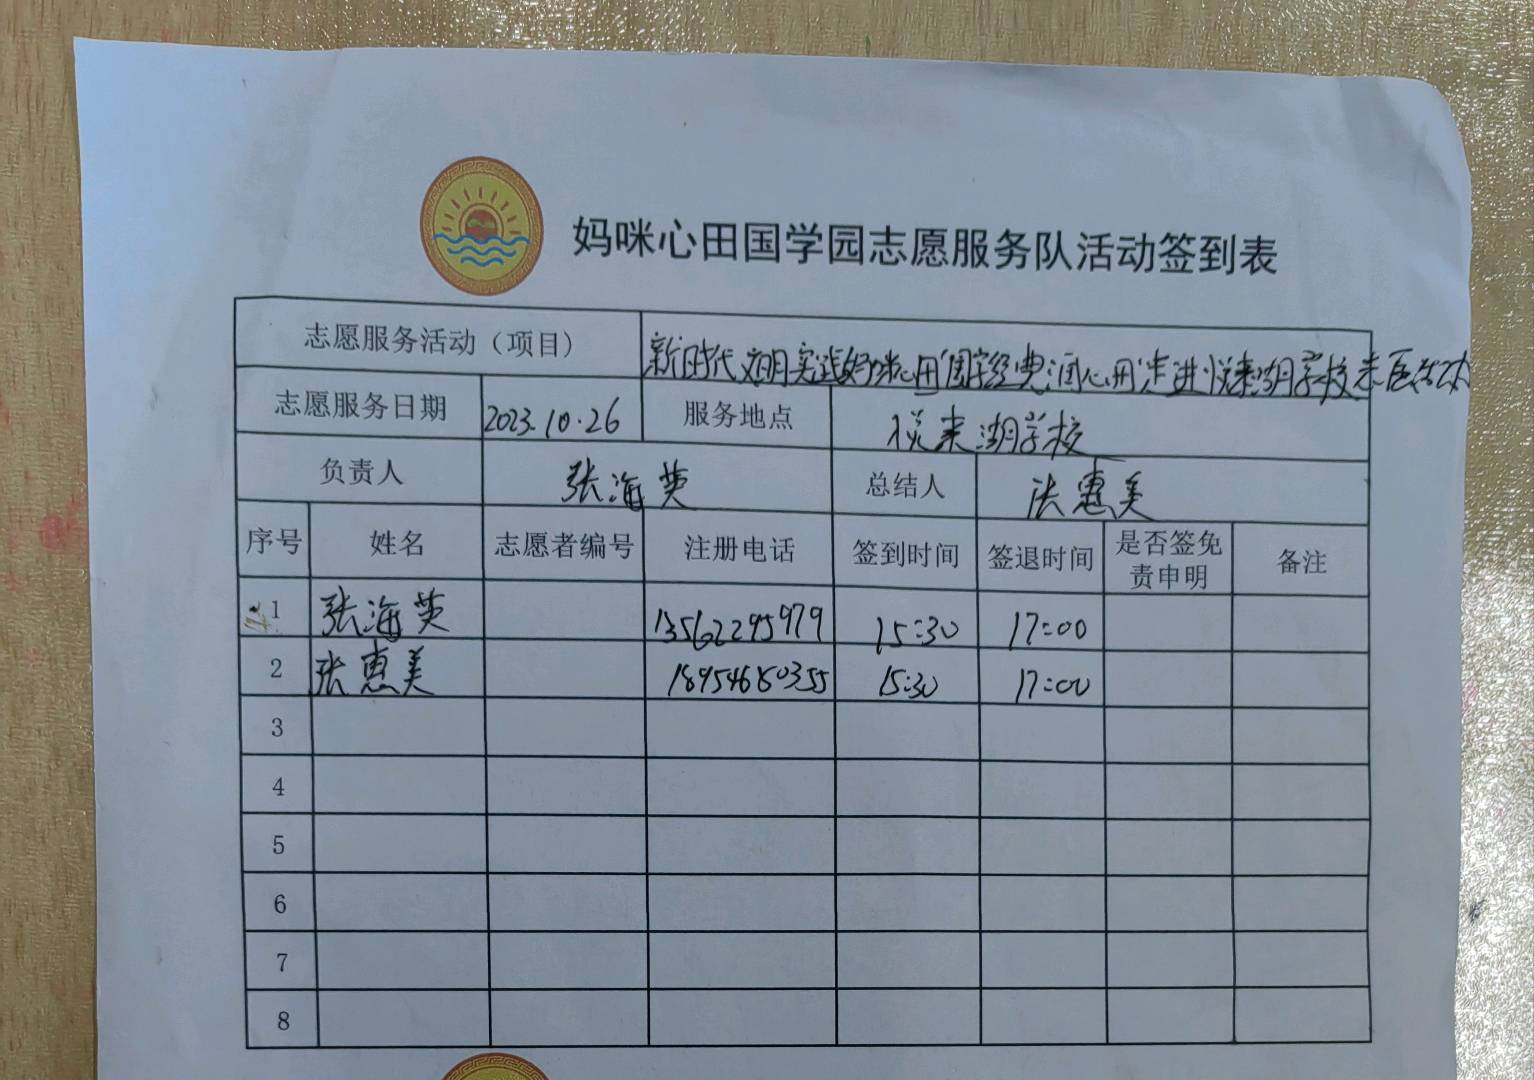 妈咪心田国学园志愿服务队活动签到表
志愿服务活动（项目） 新时代文明实践妈咪心田"国学经典润心田"走进悦来湖学校
志愿服务日期 2023.10.26 服务地点 悦来湖学校
负责人 张海英 总结人 张惠美
序号 姓名 志愿者编号 注册电话 签到时间 签退时间 是否签免责申明 备注
1 张海英 13562295979 15:30 17:00
2 张惠美 18954680355 15:30 17:00
3
4
5
6
7
8